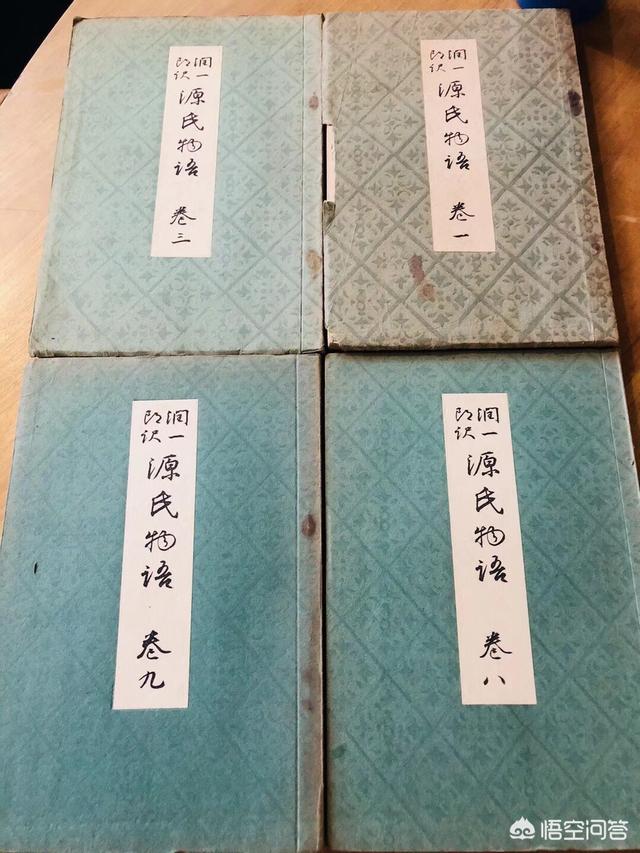 潤一郎訳 源氏物語 巻一
潤一郎訳 源氏物語 巻三
潤一郎訳 源氏物語 巻八
潤一郎訳 源氏物語 巻九
悟空问答